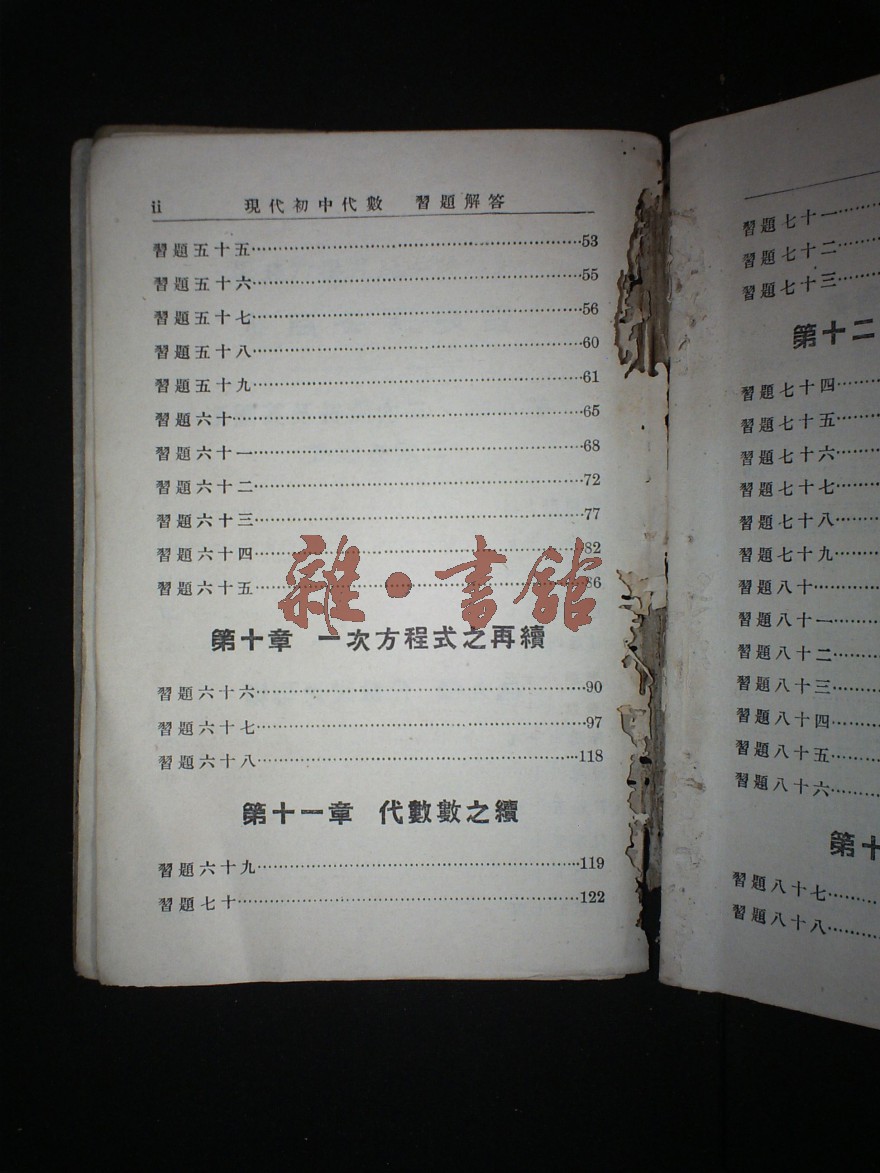 ii 現代初中代數 習題解答
習題五十五……53
習題五十六……55
習題五十七……56
習題五十八……60
習題五十九……61
習題六十……65
習題六十一……68
習題六十二……72
習題六十三……77
習題六十四……82
習題六十五……86
第十章 一次方程式之再續
習題六十六……90
習題六十七……97
習題六十八……118
第十一章 代數數之續
習題六十九……119
習題七十……122
雜·書館
習題七十一……
習題七十二……
習題七十三……
第十二
習題七十四……
習題七十五……
習題七十六……
習題七十七……
習題七十八……
習題七十九……
習題八十……
習題八十一……
習題八十二……
習題八十三……
習題八十四……
習題八十五……
習題八十六……
第十
習題八十七……
習題八十八……